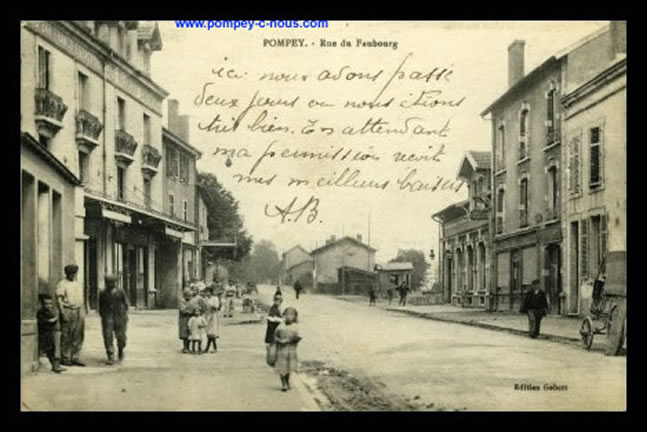 www.pompey-c-nous.com
POMPEY. - Rue du Faubourg
ici nous avons passé
deux jours ou nous étions
très bien. En attendant
ma permission reçoit
mes meilleurs baisers
A.B.
Edition Gobert